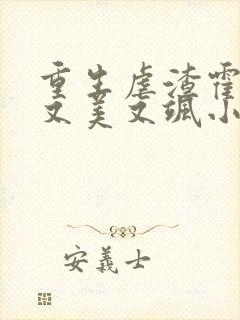 重生虐渣霍
又美又飒小
安義士